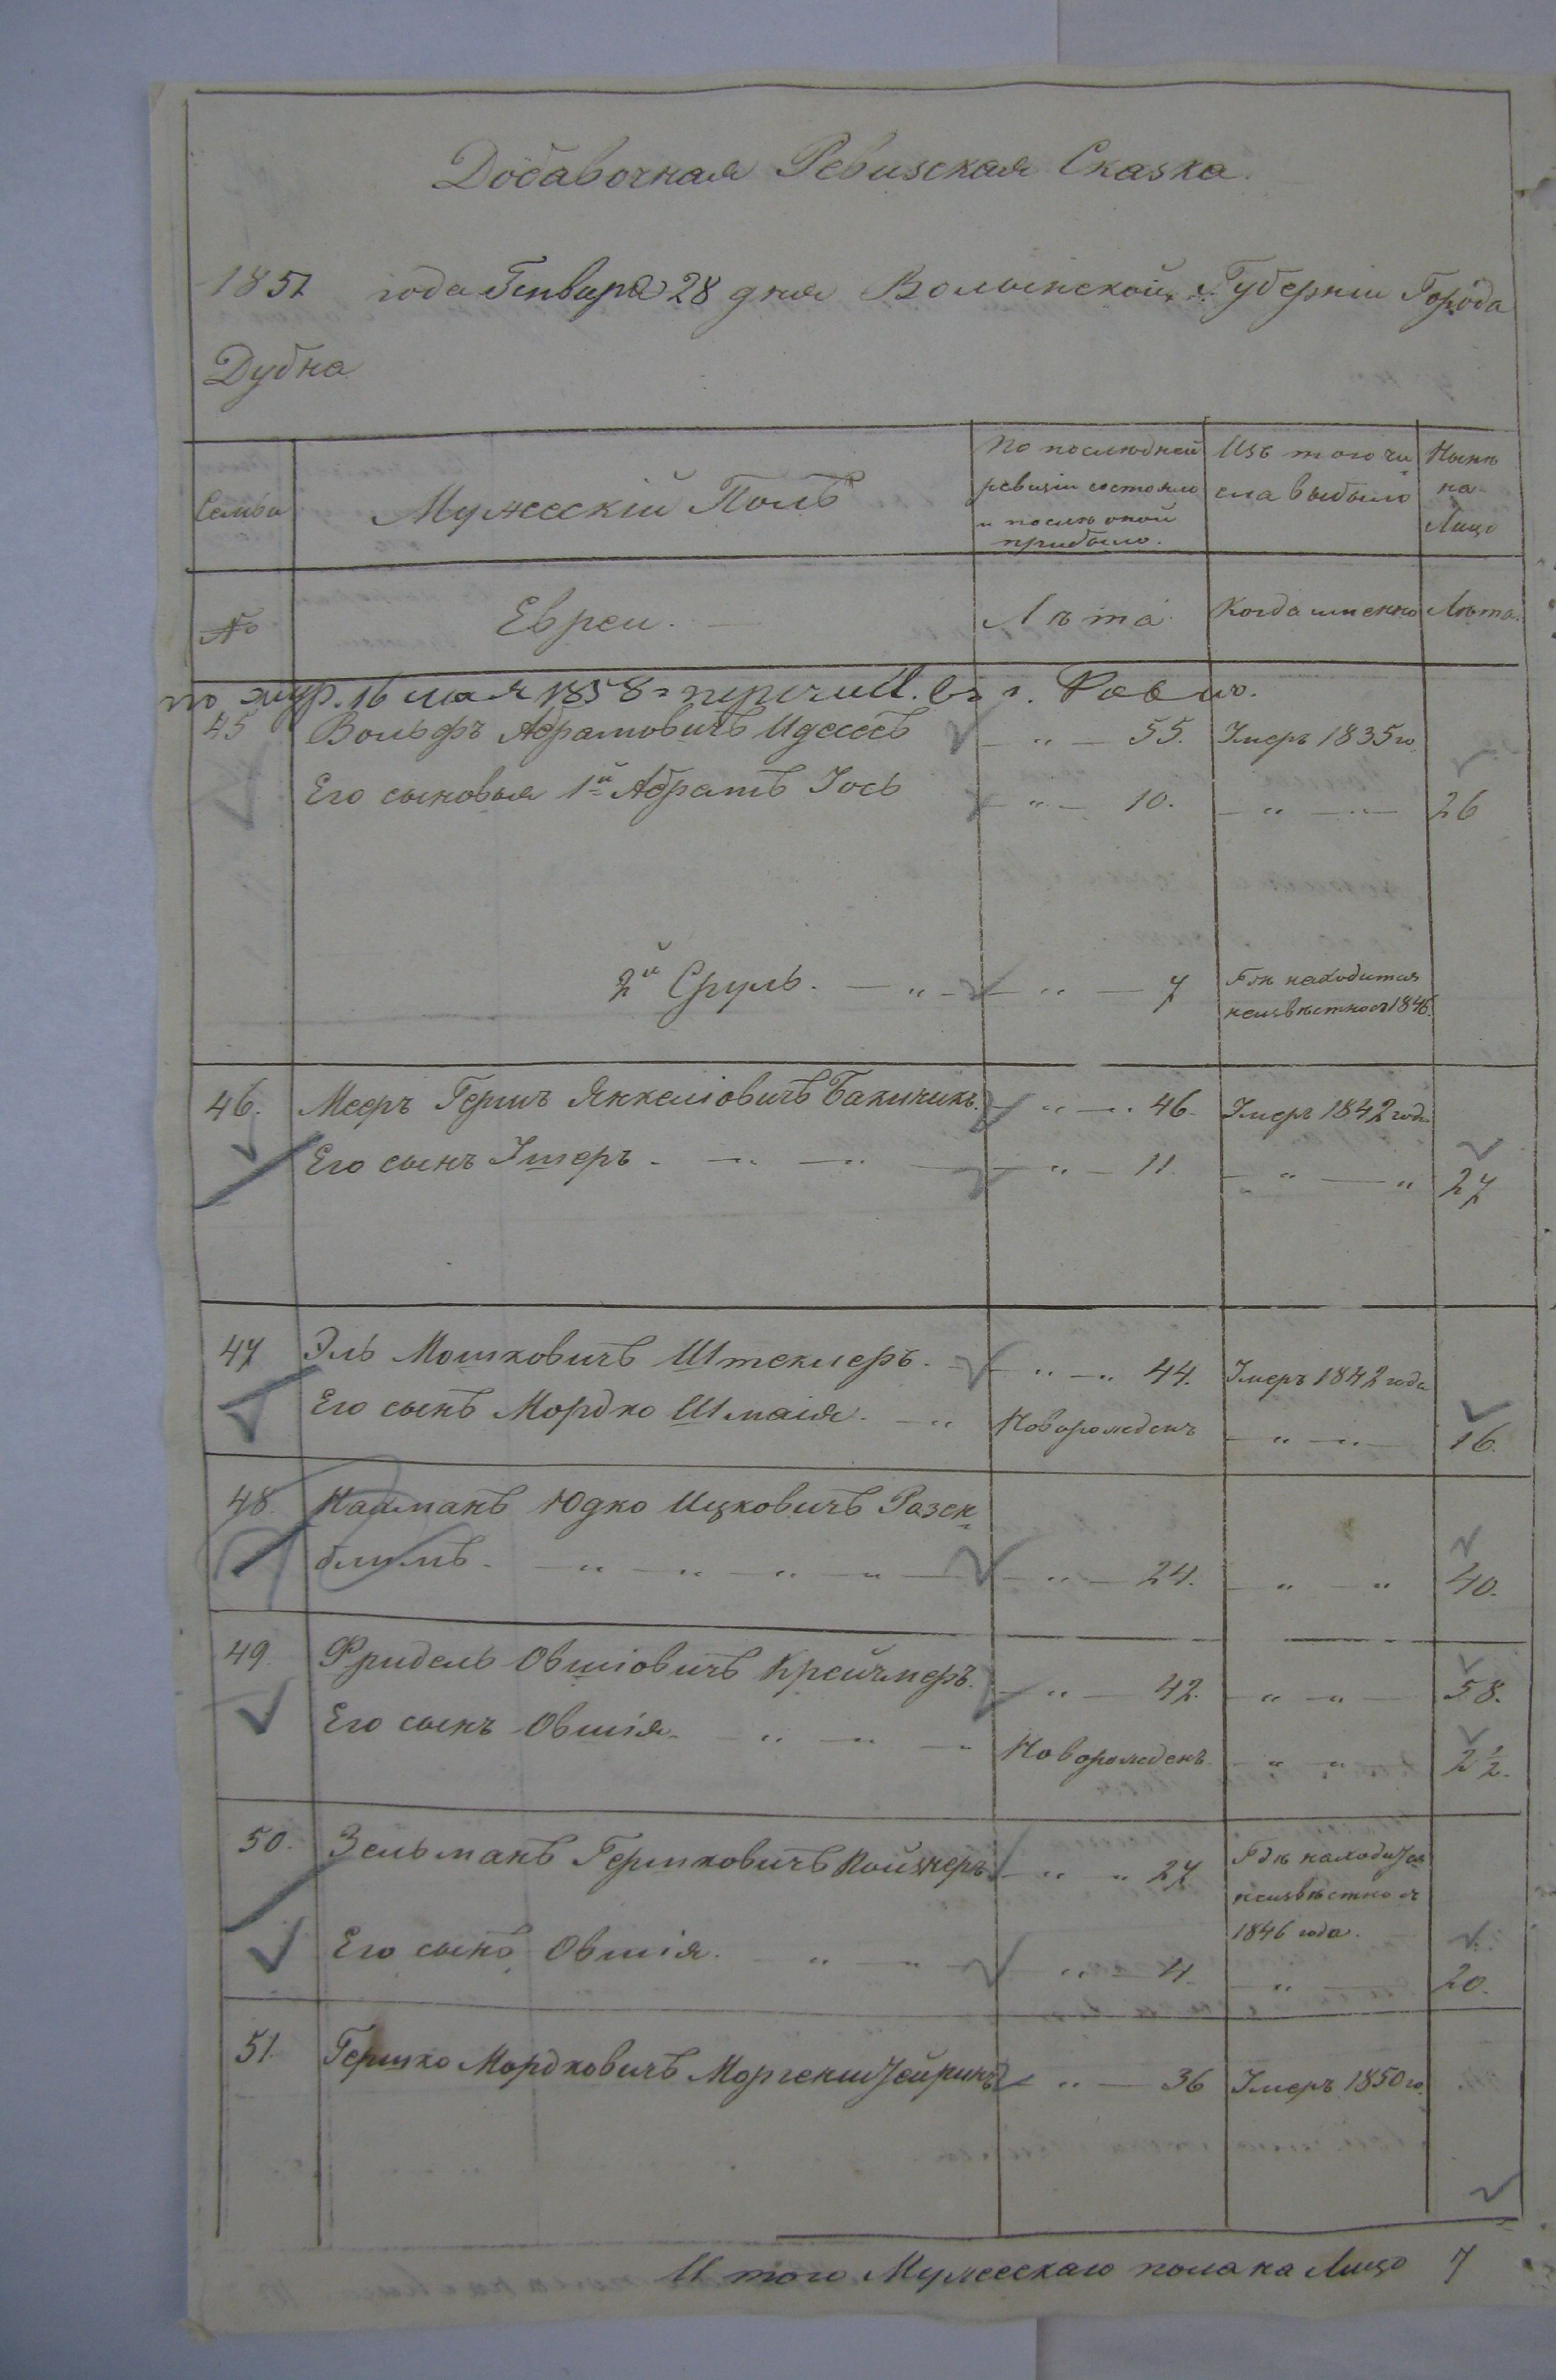 Добавочная Ревизская Сказка.
1851 года Генваря 28 дня Волынской Губерніи Города
Дубна
Семьи
Мужескій Полъ
По последней
ревизіи состояло
и после оной
прибыло.
Изъ того чи
сла выбыло
Ныне
на
Лицо
№
Евреи.
Лѣта
Когда именно
Лѣта.
по жур. 16 мая 1858 г перечисл. въ г. Ровно.
45 Вольфъ Абрамовичъ Идесесъ — " — 55. Умеръ 1835 го
Его сыновья 1й Абрамъ Іось — " — 10. — " — " — 26
2й Сруль. — " — " — 7 Гдѣ находится
неизвѣстно съ 1846.
46. Мееръ Гершъ Янкеліовичъ Бакичикъ. — " — " 46. Умеръ 1842 года
Его сынъ Ушеръ. — " — " — " — 11. — " — " 27
47 Эль Мошковичъ Штеклеръ. — " — " 44. Умеръ 1842 года
Его сынъ Мордко Шмаія. — " Новорожденъ — " — " — 16.
48. Нахманъ Юдко Ицковичъ Розен
блитъ. — " — " — " — " — " — 24. — " — " 40.
49. Фридель Овшіовичъ Крейчмеръ. — " — 42. — " — " — 58.
Его сынъ Овшія. — " — " — " Новорожденъ. — " — " — 2 ½.
50. Зельманъ Гершковичъ Койзнеръ — " " 27 Гдѣ находится
неизвѣстно съ
1846 года.
Его сынъ Овшія. " — " — " — 4. — " — 20.
51. Гершко Мордковичъ Моргенштейринъ — " — 36 Умеръ 1850 го.
Итого Мужескаго пола на Лицо 7